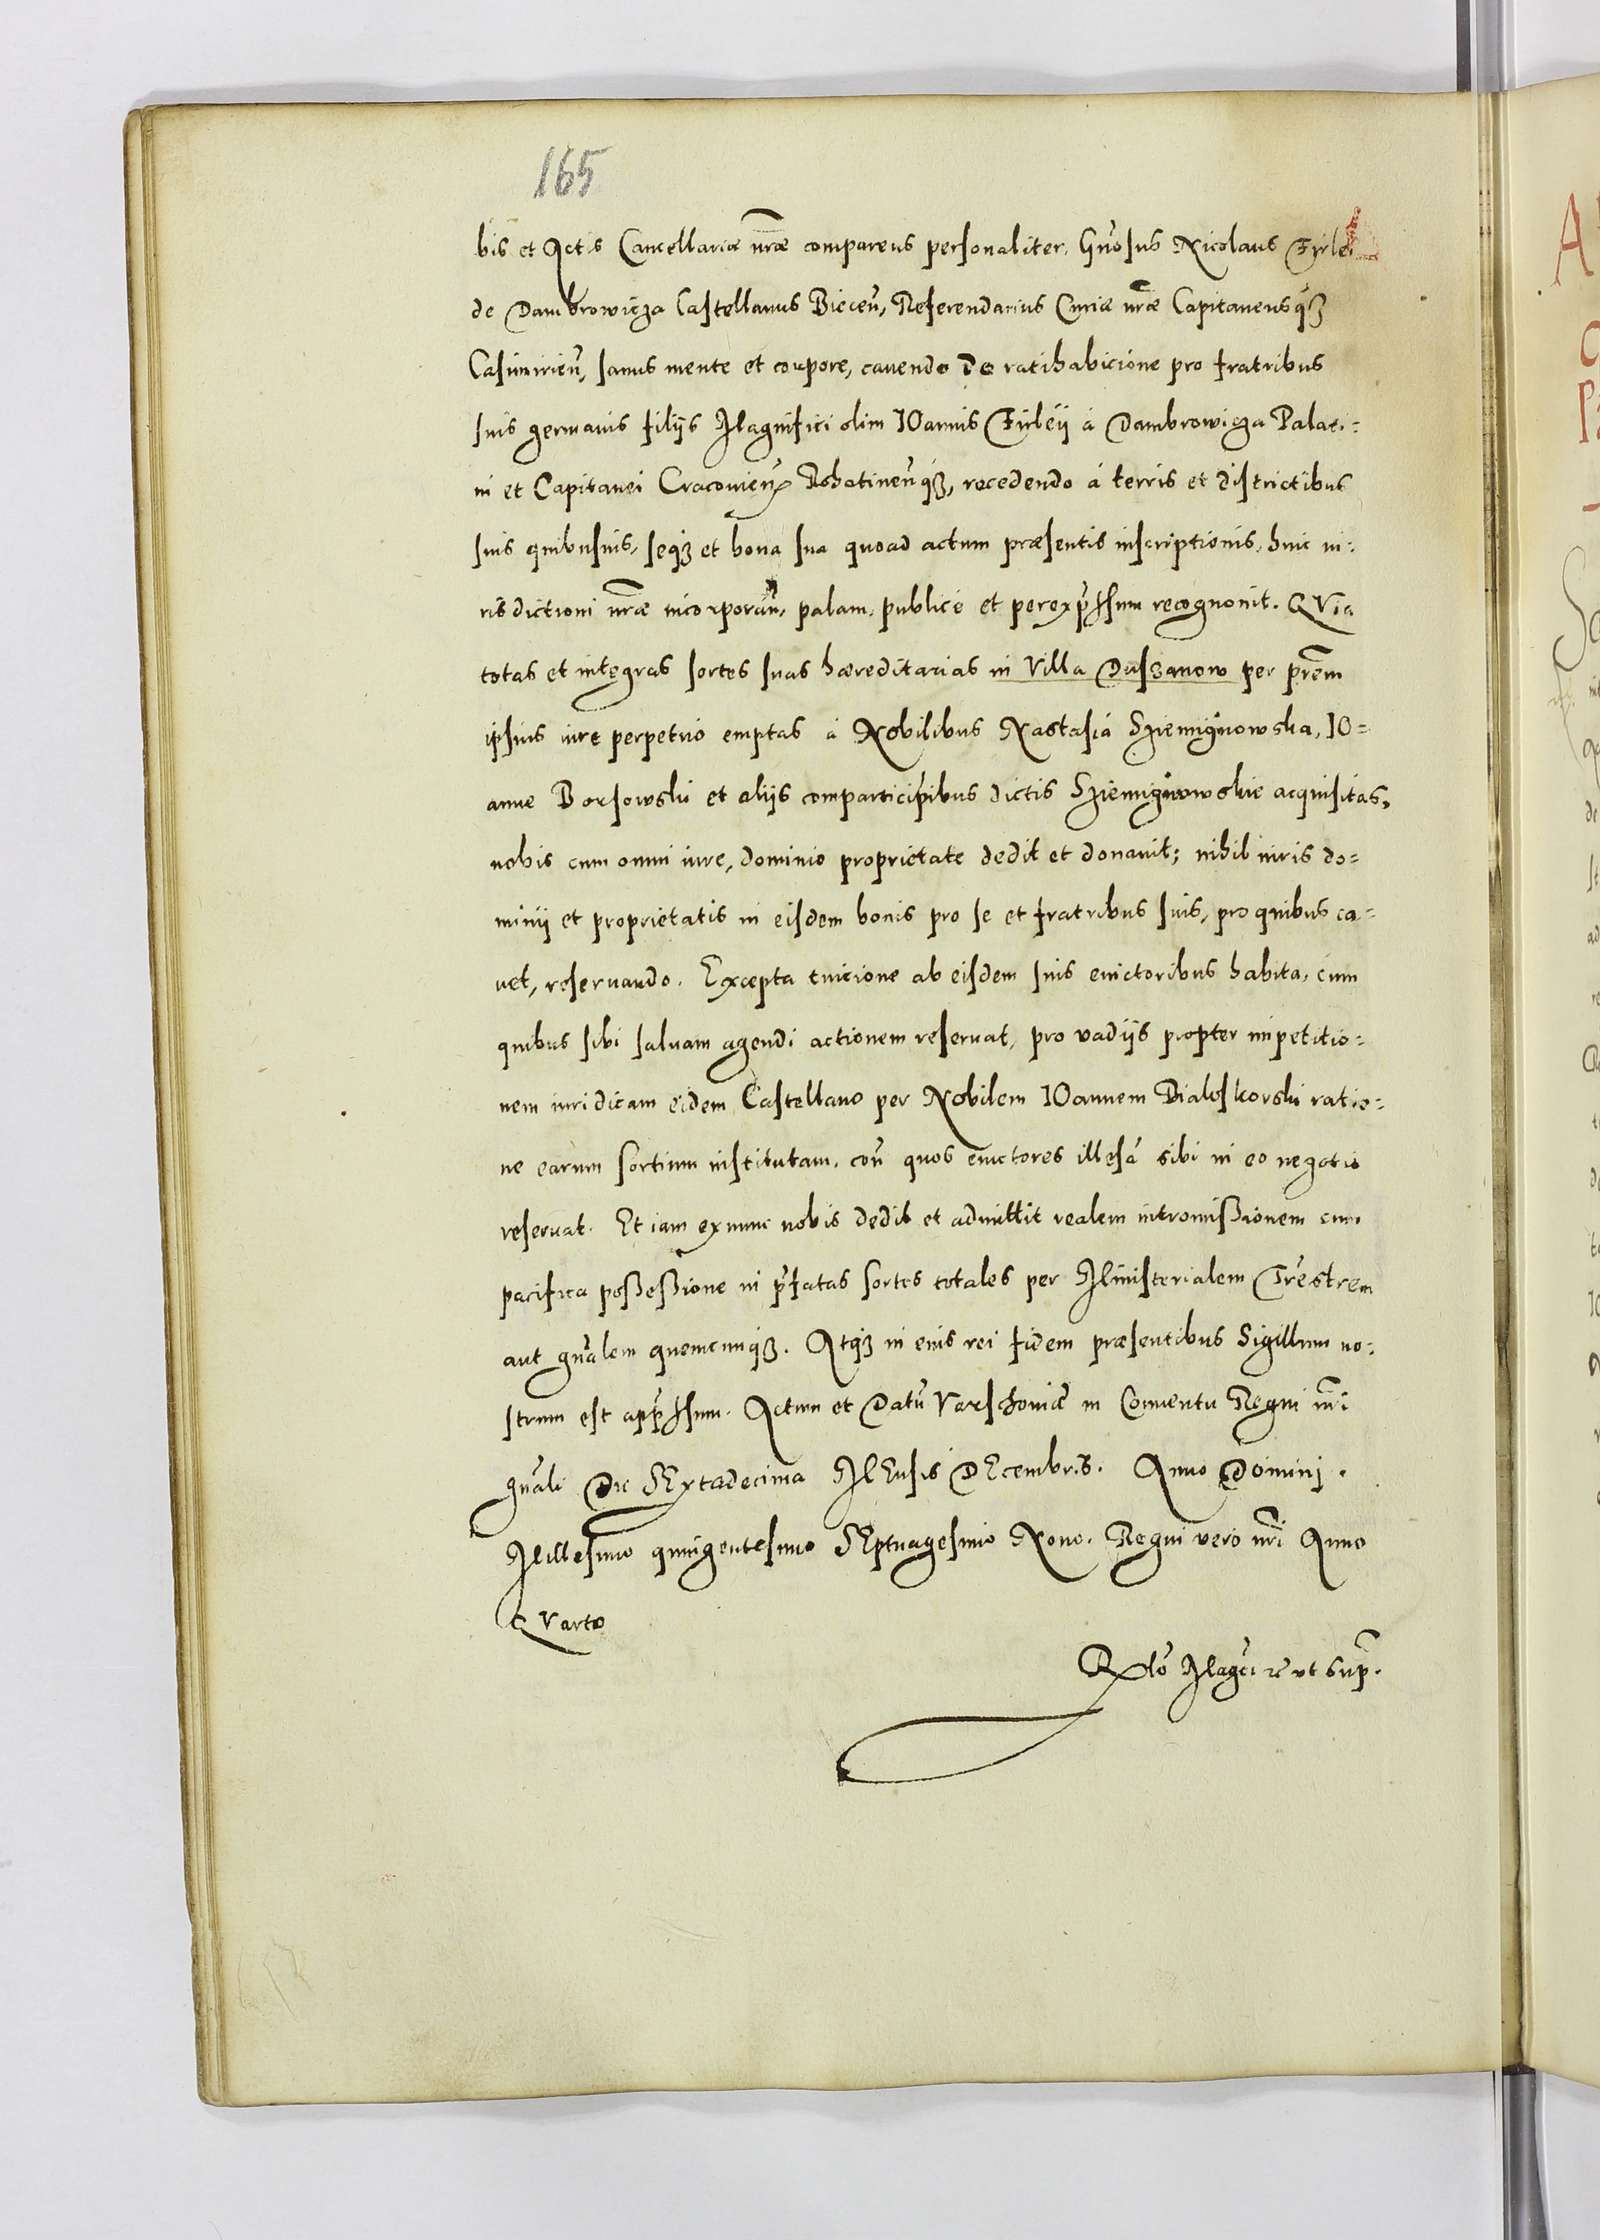 165
bis et Actis Cancellariæ nræ comparens personaliter, Gnosus Nicolaus Firlei
de Dambrowicza Castellanus Biecen, Referendarius Curiæ nræ Capitaneusq3
Casimirien, sanus mente et corpore, cavendo de ratihabicione pro fratribus
suis germanis filijs Magnifici olim IOannis Firleij á Dambrowicza Palati=
ni et Capitanei Cracovien, Rohatinenq3, recedendo á terris et districtibus
suis quibusvis, seq3 et bona sua quoad actum præsentis inscriptionis, huic iu=
risdictioni nræ incorporan, palam, publicé et perexpssum recognovit. QVia
totas et integras sortes suas hæreditarias in Villa Dussanow per prem
ipsius iure perpetuo emptas á Nobilibus Nastasiá Sziemignowska, IO=
anne Borsowski et alijs comparticipibus dictis Sziemignowskie acquisitas,
nobis cum omni iure, dominio proprietate dedit et donavit; nihil iuris do=
minij et proprietatis in eisdem bonis pro se et fratribus suis, pro quibus ca=
vet, reservando. Excepta evicione ab eisdem suis evictoribus habita, cum
quibus sibi salvam agendi actionem reservat, pro vadijs propter impetitio=
nem iuridicam eidem Castellano per Nobilem IOannem Bialoskorski ratio=
ne earum sortium institutam, con quos evictores illesá sibi in eo negotio
reservat. Et iam ex nunc nobis dedit et admittit realem intromissionem cum
pacifica possessione in pfatas sortes totales per Ministerialem Trestrem
aut gnalem quemcunq3. Atq3 in eius rei fidem præsentibus Sigillum no=
strum est appssum. Actum et Datu Varschoviæ in Conventu Regni nri
gnali Die SExtadecima MEnsis DEcembris. Anno Domini.
Millesimo quingentesimo SEptuagesimo Nono. Regni vero nri Anno
QVarto
Rlo Magci &c ut sup.